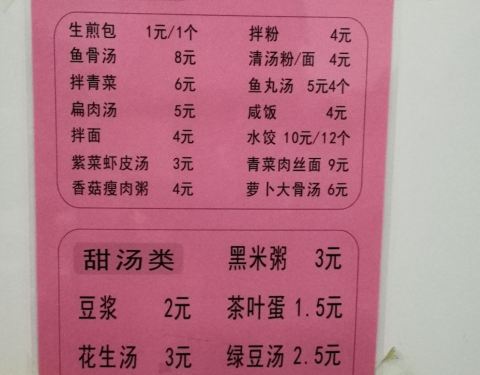 生煎包 1元/1个 拌粉 4元
鱼骨汤 8元 清汤粉/面 4元
拌青菜 6元 鱼丸汤 5元4个
扁肉汤 5元 咸饭 4元
拌面 4元 水饺 10元/12个
紫菜虾皮汤 3元 青菜肉丝面 9元
香菇瘦肉粥 4元 萝卜大骨汤 6元
甜汤类 黑米粥 3元
豆浆 2元 茶叶蛋 1.5元
花生汤 3元 绿豆汤 2.5元